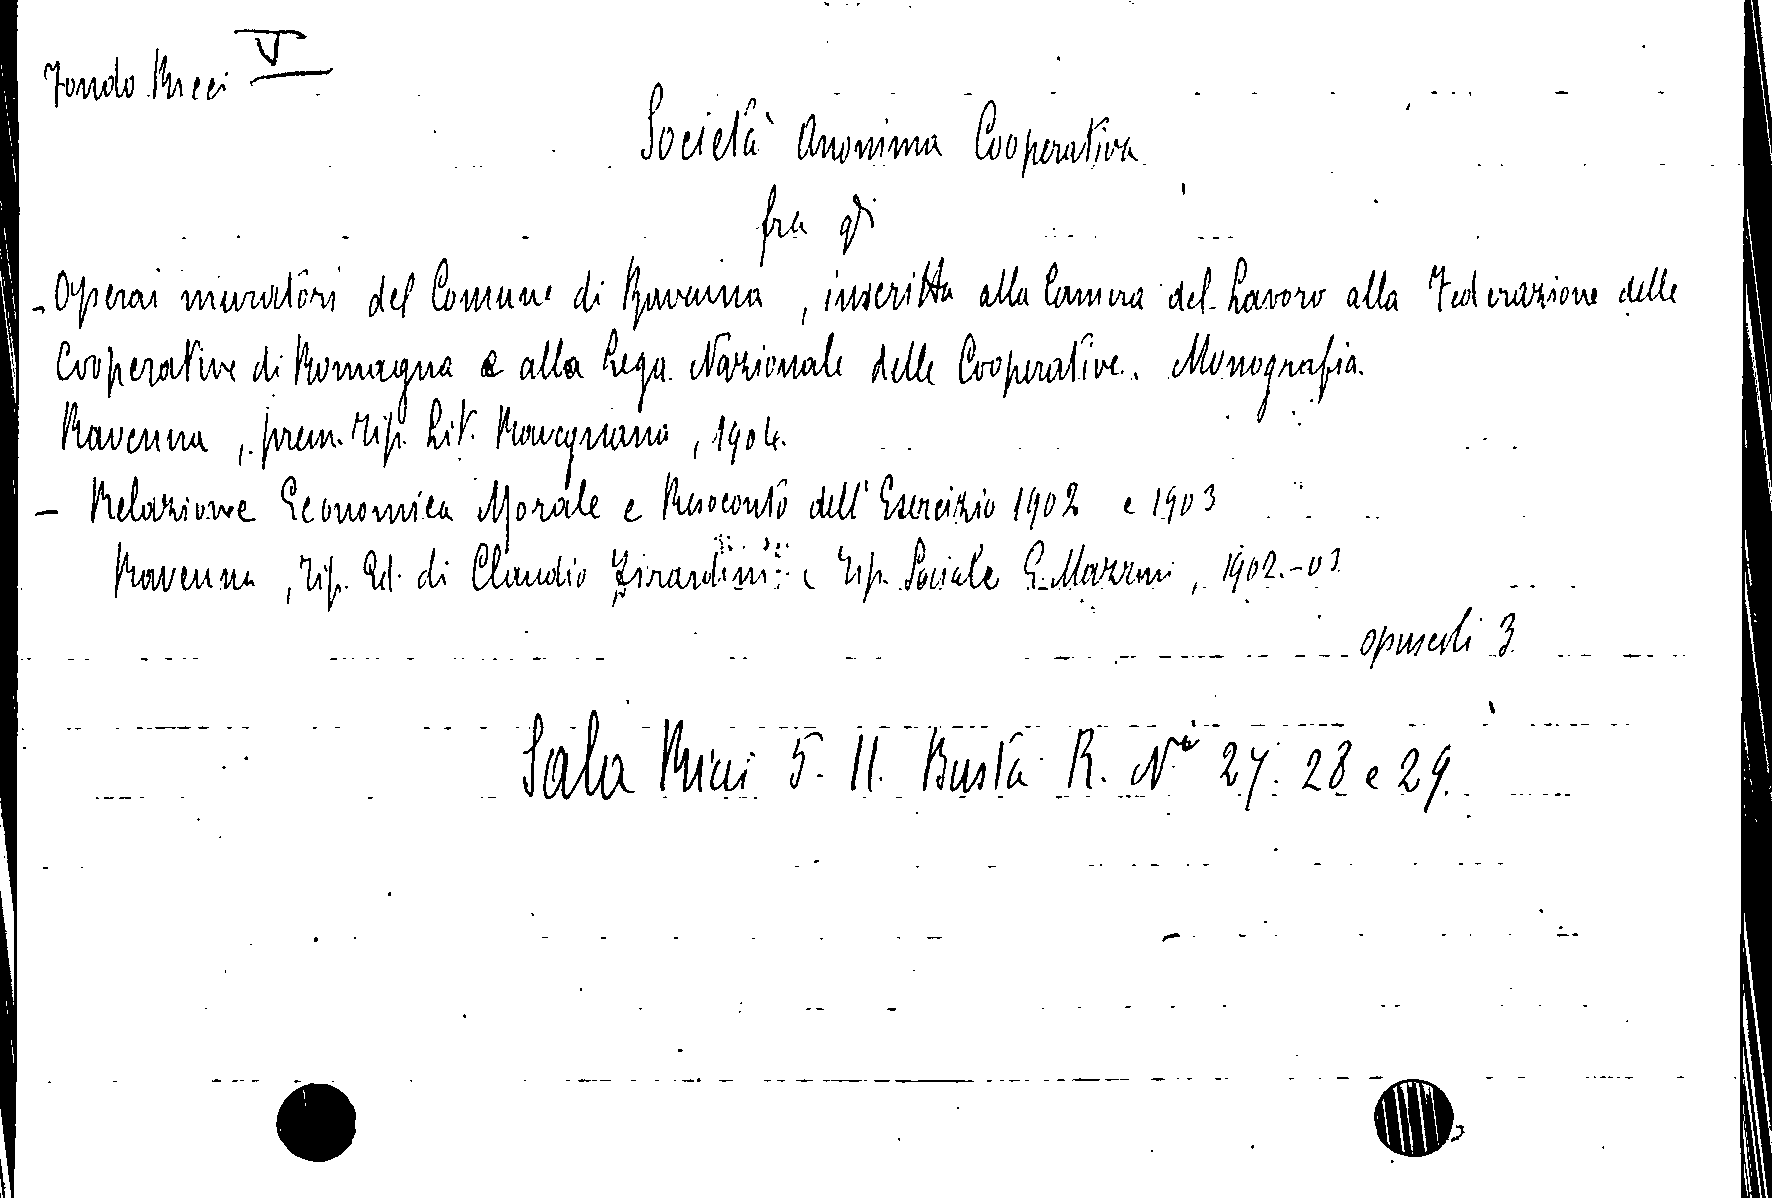 Fondo Ricci V
Società Anonima Cooperativa
fra gli
- Operai muratori del Comune di Ravenna, inscritta alla Camera del Lavoro alla Federazione delle
Cooperative di Romagna e alla Lega Nazionale delle Cooperative. Monografia.
Ravenna, prem. Tip. Lit. Ravegnana, 1904.
- Relazione Economica Morale e Resoconto dell'Esercizio 1902 e 1903
Ravenna, Tip. Ed. di Claudio Zirardini e Tip. Sociale G. Mazzini, 1902-03
opuscoli 3
Sala Ricci 5. 11. Busta R. Nⁱ 27. 28 e 29.